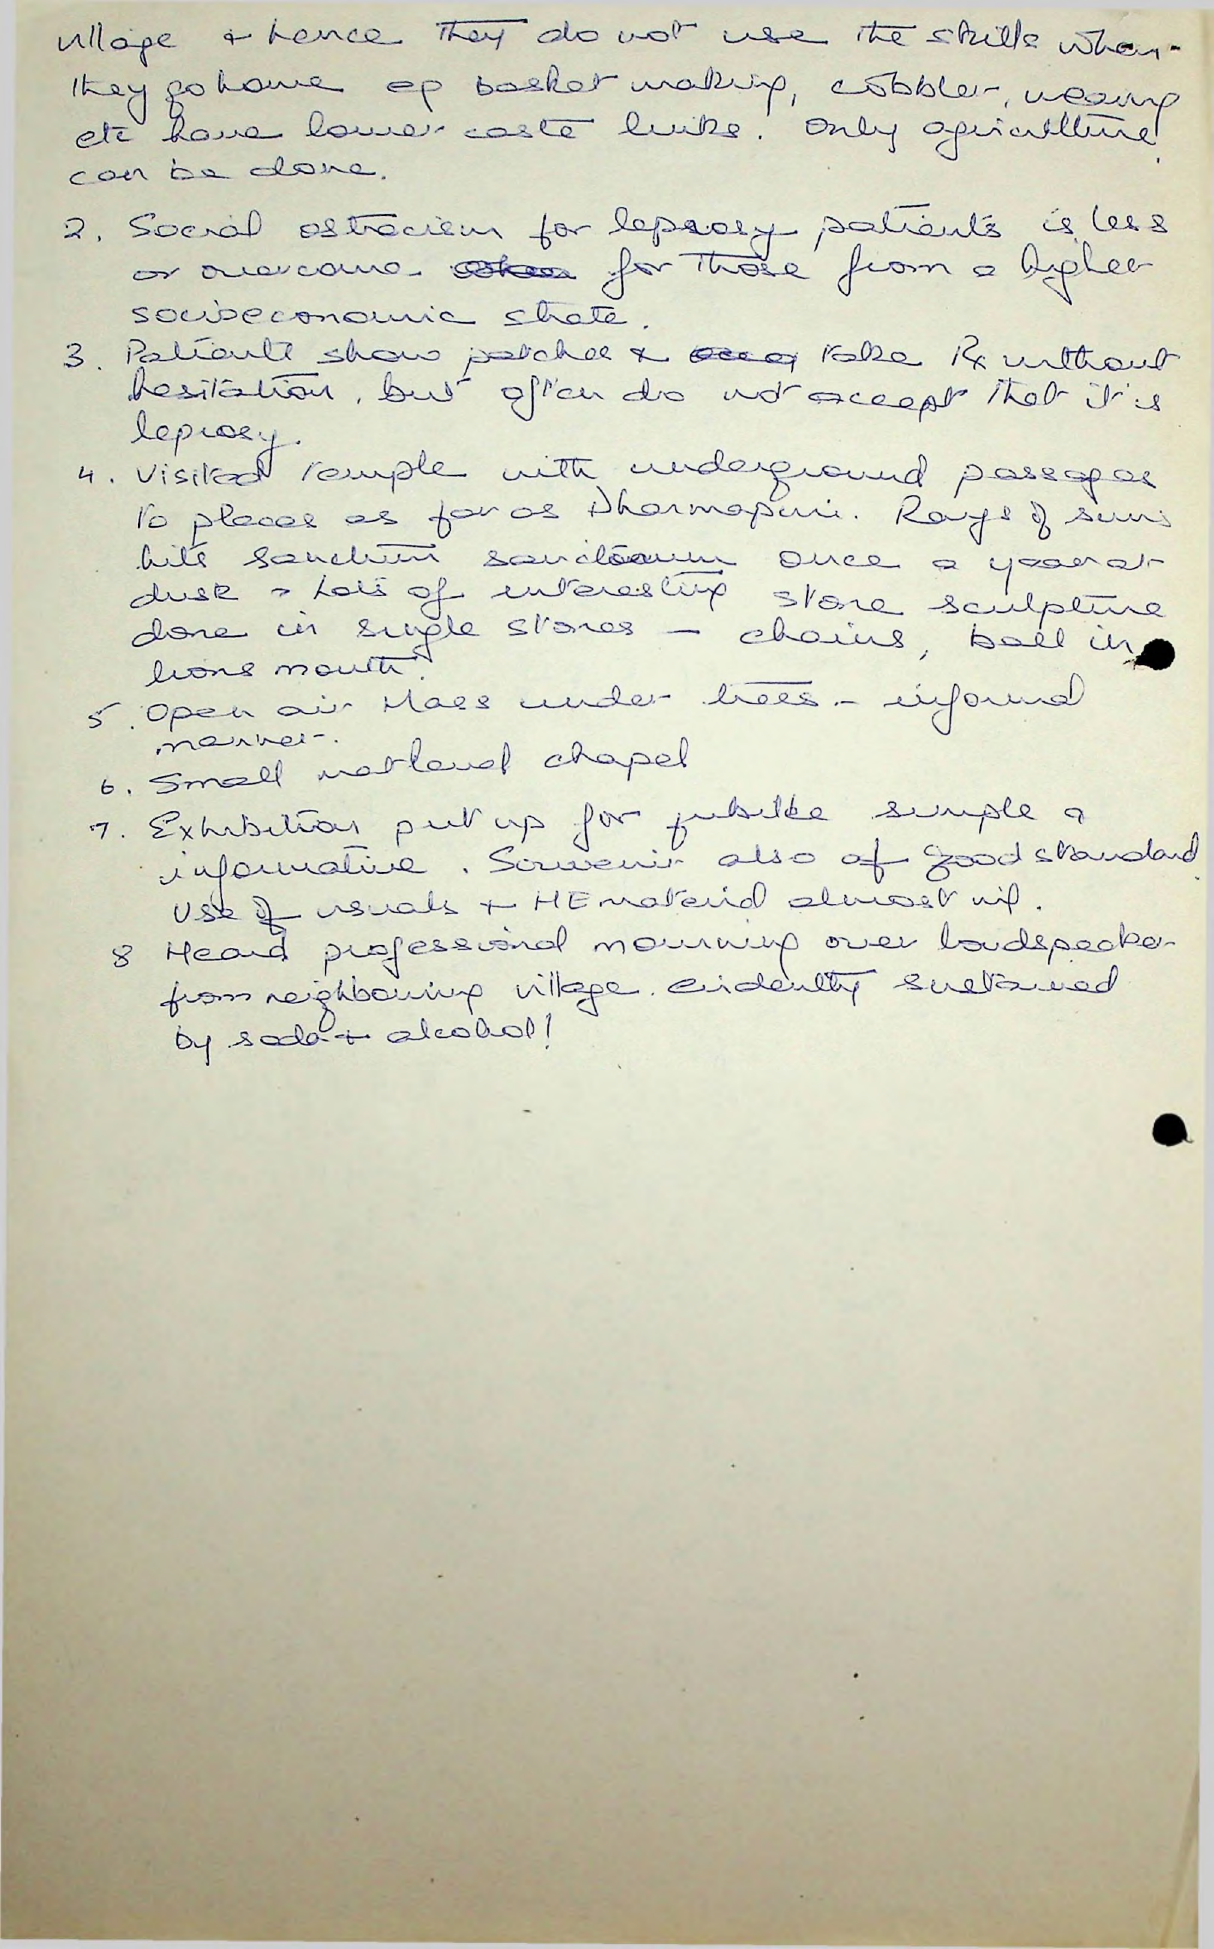 village & hence they do not use the skills when
they go home eg basket making, cobbler, weaving
etc have lower caste links. Only agriculture
can be done.
2. Social ostracism for leprosy patients is less
or overcome for those from a higher
socioeconomic strata.
3. Patients show patches & take Rx without
hesitation, but often do not accept that it is
leprosy.
4. Visited temple with underground passages
to places as far as Dharmapuri. Rays of suns
hits sanctum sanctorum once a year at
dusk - Lots of interesting stone sculpture
done in single stones - chains, ball in
lions mouth.
5. Open air Mass under trees - informal
manner.
6. Small chapel
7. Exhibition put up for jubilee simple &
informative. Souvenir also of good standard
Use of visuals & HE material almost nil.
8 Heard professional mourning over loudspeaker
from neighbouring village. evidently sustained
by soda + alcohol!